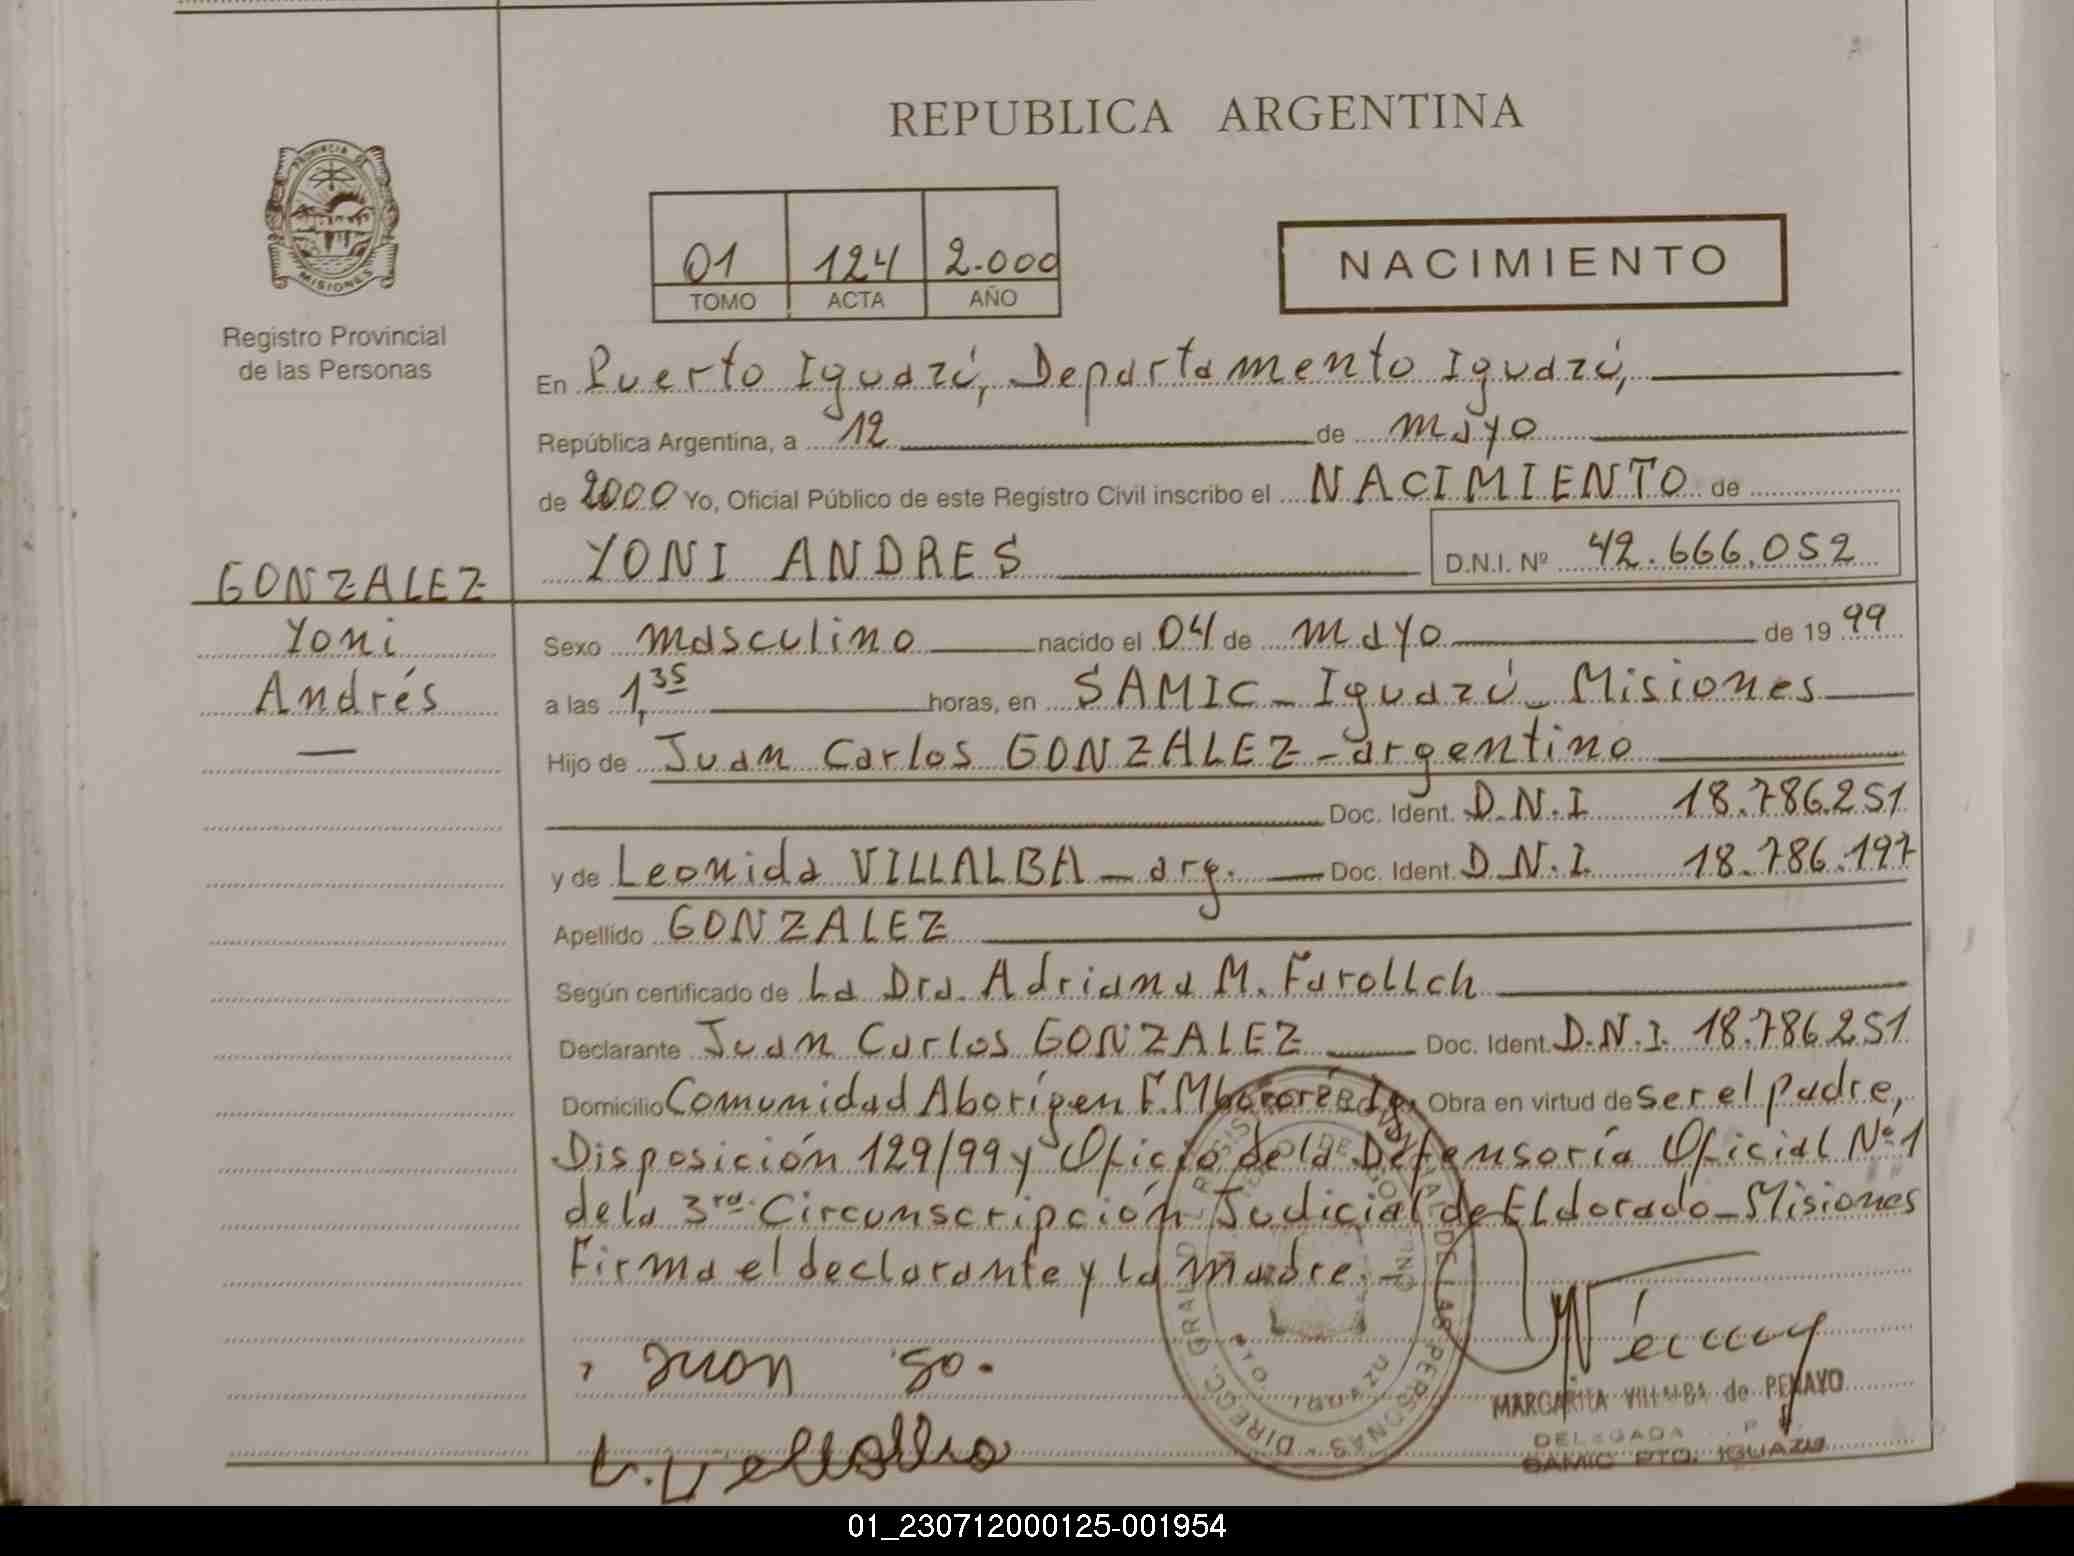 REPUBLICA ARGENTINA
PROVINCIA DE MISIONES
Registro Provincial
de las Personas
01 124 2.000
TOMO ACTA AÑO
NACIMIENTO
En Puerto Iguazú, Departamento Iguazú,
República Argentina, a 12 de mayo
de 2000 Yo, Oficial Público de este Registro Civil inscribo el NACIMIENTO de
YONI ANDRES D.N.I. Nº 42.666.052
GONZALEZ
Yoni
Andrés
Sexo masculino nacido el 04 de mayo de 1999
a las 1,35 horas, en SAMIC - Iguazú - Misiones
Hijo de Juan Carlos GONZALEZ - argentino
Doc. Ident. D.N.I 18.786.251
y de Leonida VILLALBA - arg. Doc. Ident. D.N.I. 18.786.197
Apellido GONZALEZ
Según certificado de La Dra. Adriana M. Farollch
Declarante Juan Carlos GONZALEZ Doc. Ident. D.N.I. 18.786.251
Domicilio Comunidad Aborígen F. Mbororé Ig. Obra en virtud de ser el padre,
Disposición 129/99 y Oficio de la Defensoría Oficial Nº 1
de la 3ra. Circunscripción Judicial de Eldorado - Misiones
Firma el declarante y la madre. -
Juan go.
MARGARITA VILLALBA de PENAYO
DELEGADA
SAMIC PTO. IGUAZU
01_230712000125-001954